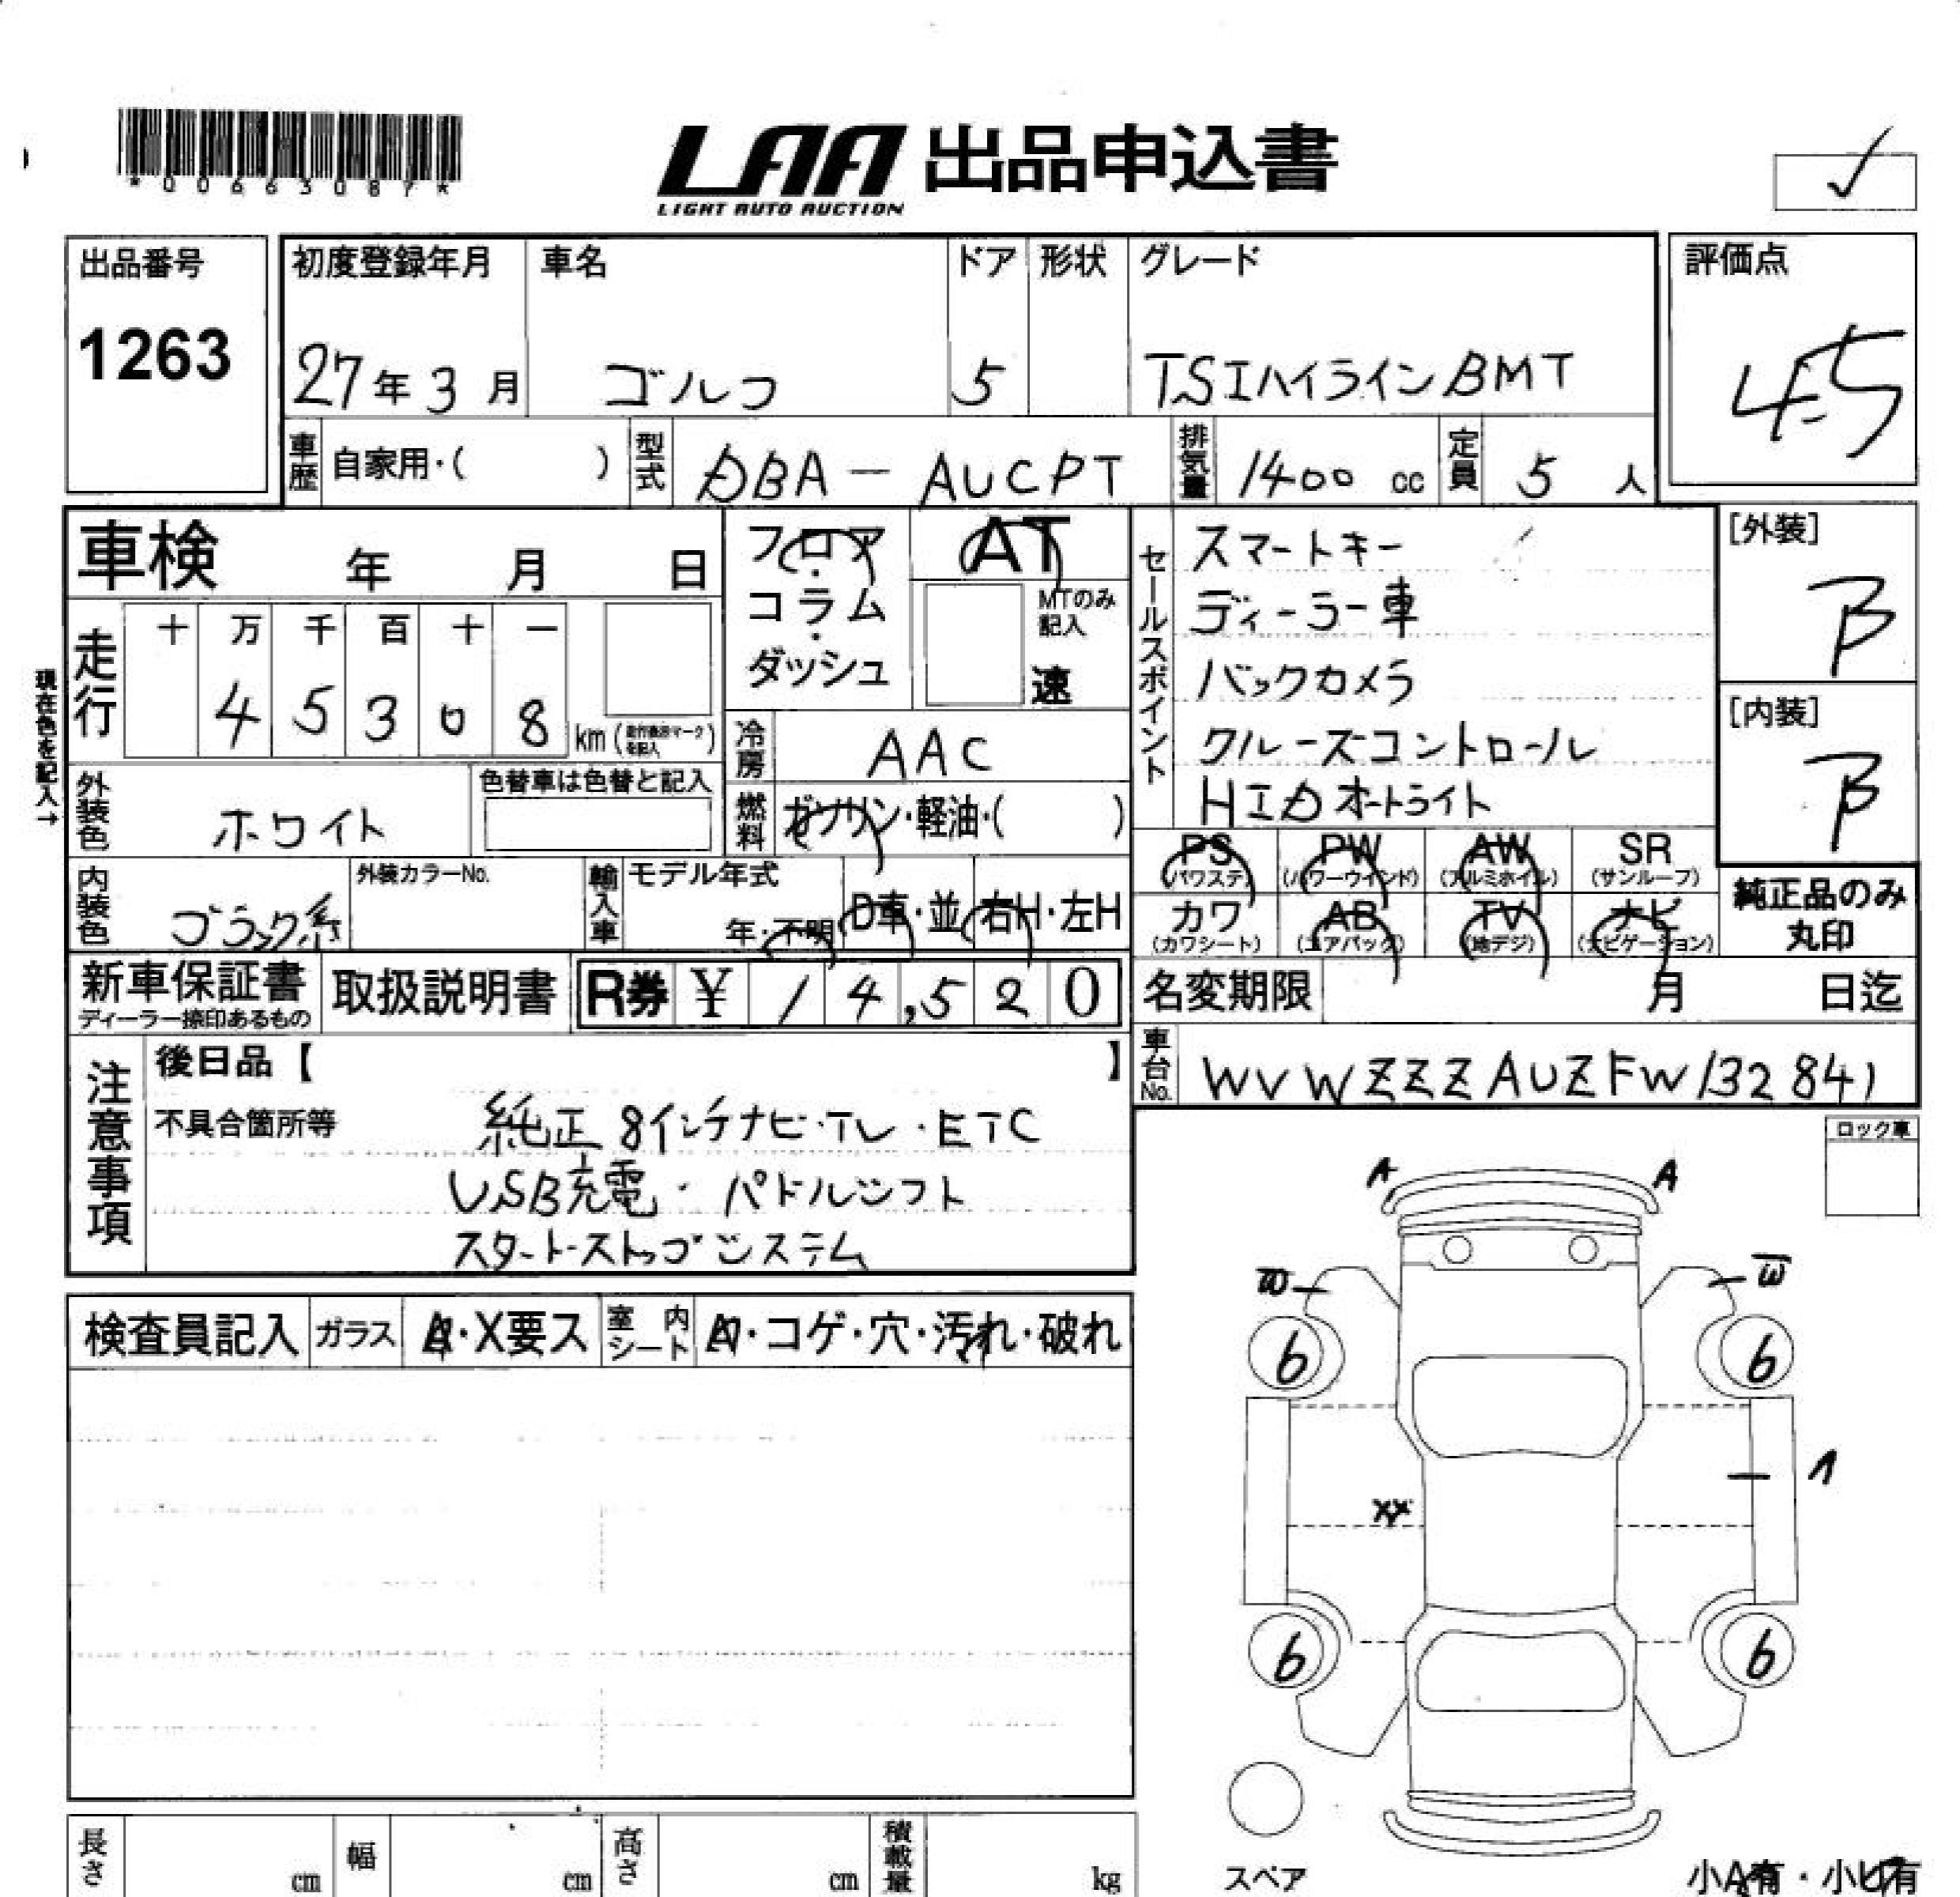 *00663087*
LAA 出品申込書
LIGHT AUTO AUCTION
出品番号
1263
初度登録年月
27年3月
車名
ゴルフ
ドア
5
形状
グレード
TSIハイラインBMT
評価点
4.5
車歴
自家用・( )
型式
DBA-AUCPT
排気量
1400 cc
定員
5 人
車検 年 月 日
フロア・コラム・ダッシュ
AT
MTのみ記入
速
セールスポイント
スマートキー
ディーラー車
バックカメラ
クルーズコントロール
HIDオートライト
[外装]
B
[内装]
B
現在色を記入→
走行
十 万 千 百 十 一
4 5 3 0 8 km
冷房
AAC
外装色
ホワイト
色替車は色替と記入
燃料
ガソリン・軽油・( )
PS (パワステ)
PW (パワーウインド)
AW (アルミホイル)
SR (サンルーフ)
カワ (カワシート)
AB (エアバック)
TV (地デジ)
ナビ (ナビゲーション)
純正品のみ
丸印
内装色
ブラック系
外装カラーNo.
輸入車
モデル年式
年・不明
D車・並
右H・左H
新車保証書
ディーラー捺印あるもの
取扱説明書
R券 ¥ 14,520
名変期限 月 日迄
車台No.
WVWZZZAUZFW132841
注意事項
後日品【 】
不具合箇所等
純正8インチナビ・TV・ETC
USB充電・パドルシフト
スタートストップシステム
ロック車
A A
W W
6 6
1
XX
6 6
検査員記入
ガラス
A・X要ス
室内シート
・コゲ・穴・汚れ・破れ
長さ cm
幅 cm
高さ cm
積載量 kg
スペア
小A有・小U有